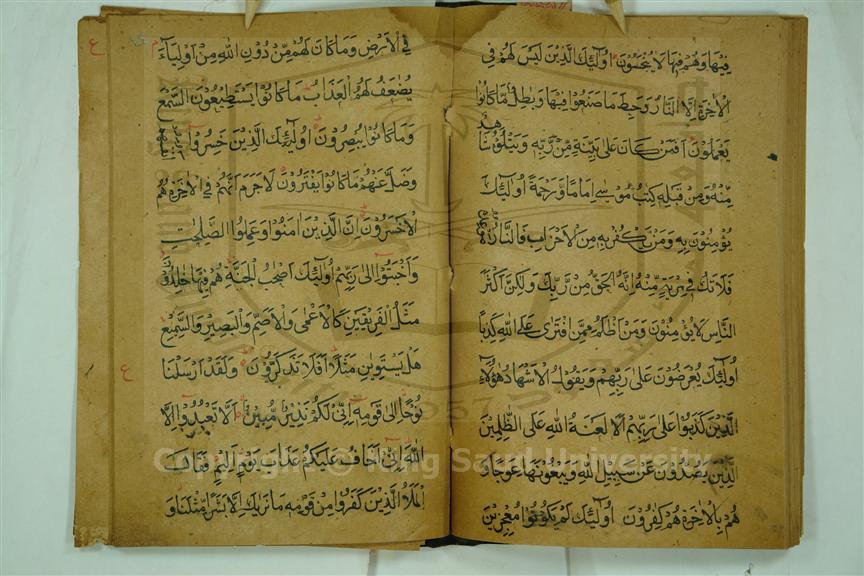 فِيْهَا وَهُمْ فِيْهَا لَا يُبْخَسُوْنَ اُولٰٓئِكَ الَّذِيْنَ لَيْسَ لَهُمْ فِى
الْاٰخِرَةِ اِلَّا النَّارُ وَحَبِطَ مَا صَنَعُوْا فِيْهَا وَبٰطِلٌ مَّا كَانُوْا
يَعْمَلُوْنَ اَفَمَنْ كَانَ عَلٰى بَيِّنَةٍ مِّنْ رَّبِّهٖ وَيَتْلُوْهُ شَاهِدٌ
مِّنْهُ وَمِنْ قَبْلِهٖ كِتٰبُ مُوْسٰٓى اِمَامًا وَّرَحْمَةً اُولٰٓئِكَ
يُؤْمِنُوْنَ بِهٖ وَمَنْ يَّكْفُرْ بِهٖ مِنَ الْاَحْزَابِ فَالنَّارُ مَوْعِدُهٗ
فَلَا تَكُ فِيْ مِرْيَةٍ مِّنْهُ اِنَّهُ الْحَقُّ مِنْ رَّبِّكَ وَلٰكِنَّ اَكْثَرَ
النَّاسِ لَا يُؤْمِنُوْنَ وَمَنْ اَظْلَمُ مِمَّنِ افْتَرٰى عَلَى اللّٰهِ كَذِبًا
اُولٰٓئِكَ يُعْرَضُوْنَ عَلٰى رَبِّهِمْ وَيَقُوْلُ الْاَشْهَادُ هٰٓؤُلَآءِ
الَّذِيْنَ كَذَبُوْا عَلٰى رَبِّهِمْ اَلَا لَعْنَةُ اللّٰهِ عَلَى الظّٰلِمِيْنَ
الَّذِيْنَ يَصُدُّوْنَ عَنْ سَبِيْلِ اللّٰهِ وَيَبْغُوْنَهَا عِوَجًا وَ
هُمْ بِالْاٰخِرَةِ هُمْ كٰفِرُوْنَ اُولٰٓئِكَ لَمْ يَكُوْنُوْا مُعْجِزِيْنَ
فِى الْاَرْضِ وَمَا كَانَ لَهُمْ مِّنْ دُوْنِ اللّٰهِ مِنْ اَوْلِيَآءَ
يُضٰعَفُ لَهُمُ الْعَذَابُ مَا كَانُوْا يَسْتَطِيْعُوْنَ السَّمْعَ
وَمَا كَانُوْا يُبْصِرُوْنَ اُولٰٓئِكَ الَّذِيْنَ خَسِرُوْٓا اَنْفُسَهُمْ
وَضَلَّ عَنْهُمْ مَّا كَانُوْا يَفْتَرُوْنَ لَا جَرَمَ اَنَّهُمْ فِى الْاٰخِرَةِ هُمُ
الْاَخْسَرُوْنَ اِنَّ الَّذِيْنَ اٰمَنُوْا وَعَمِلُوا الصّٰلِحٰتِ
وَاَخْبَتُوْٓا اِلٰى رَبِّهِمْ اُولٰٓئِكَ اَصْحٰبُ الْجَنَّةِ هُمْ فِيْهَا خٰلِدُوْنَ
مَثَلُ الْفَرِيْقَيْنِ كَالْاَعْمٰى وَالْاَصَمِّ وَالْبَصِيْرِ وَالسَّمِيْعِ
هَلْ يَسْتَوِيٰنِ مَثَلًا اَفَلَا تَذَكَّرُوْنَ وَلَقَدْ اَرْسَلْنَا
نُوْحًا اِلٰى قَوْمِهٖٓ اِنِّيْ لَكُمْ نَذِيْرٌ مُّبِيْنٌ اَنْ لَّا تَعْبُدُوْٓا اِلَّا
اللّٰهَ اِنِّيْٓ اَخَافُ عَلَيْكُمْ عَذَابَ يَوْمٍ اَلِيْمٍ فَقَالَ
الْمَلَاُ الَّذِيْنَ كَفَرُوْا مِنْ قَوْمِهٖ مَا نَرٰىكَ اِلَّا بَشَرًا مِّثْلَنَا وَ
Copyright © King Saud University
1957